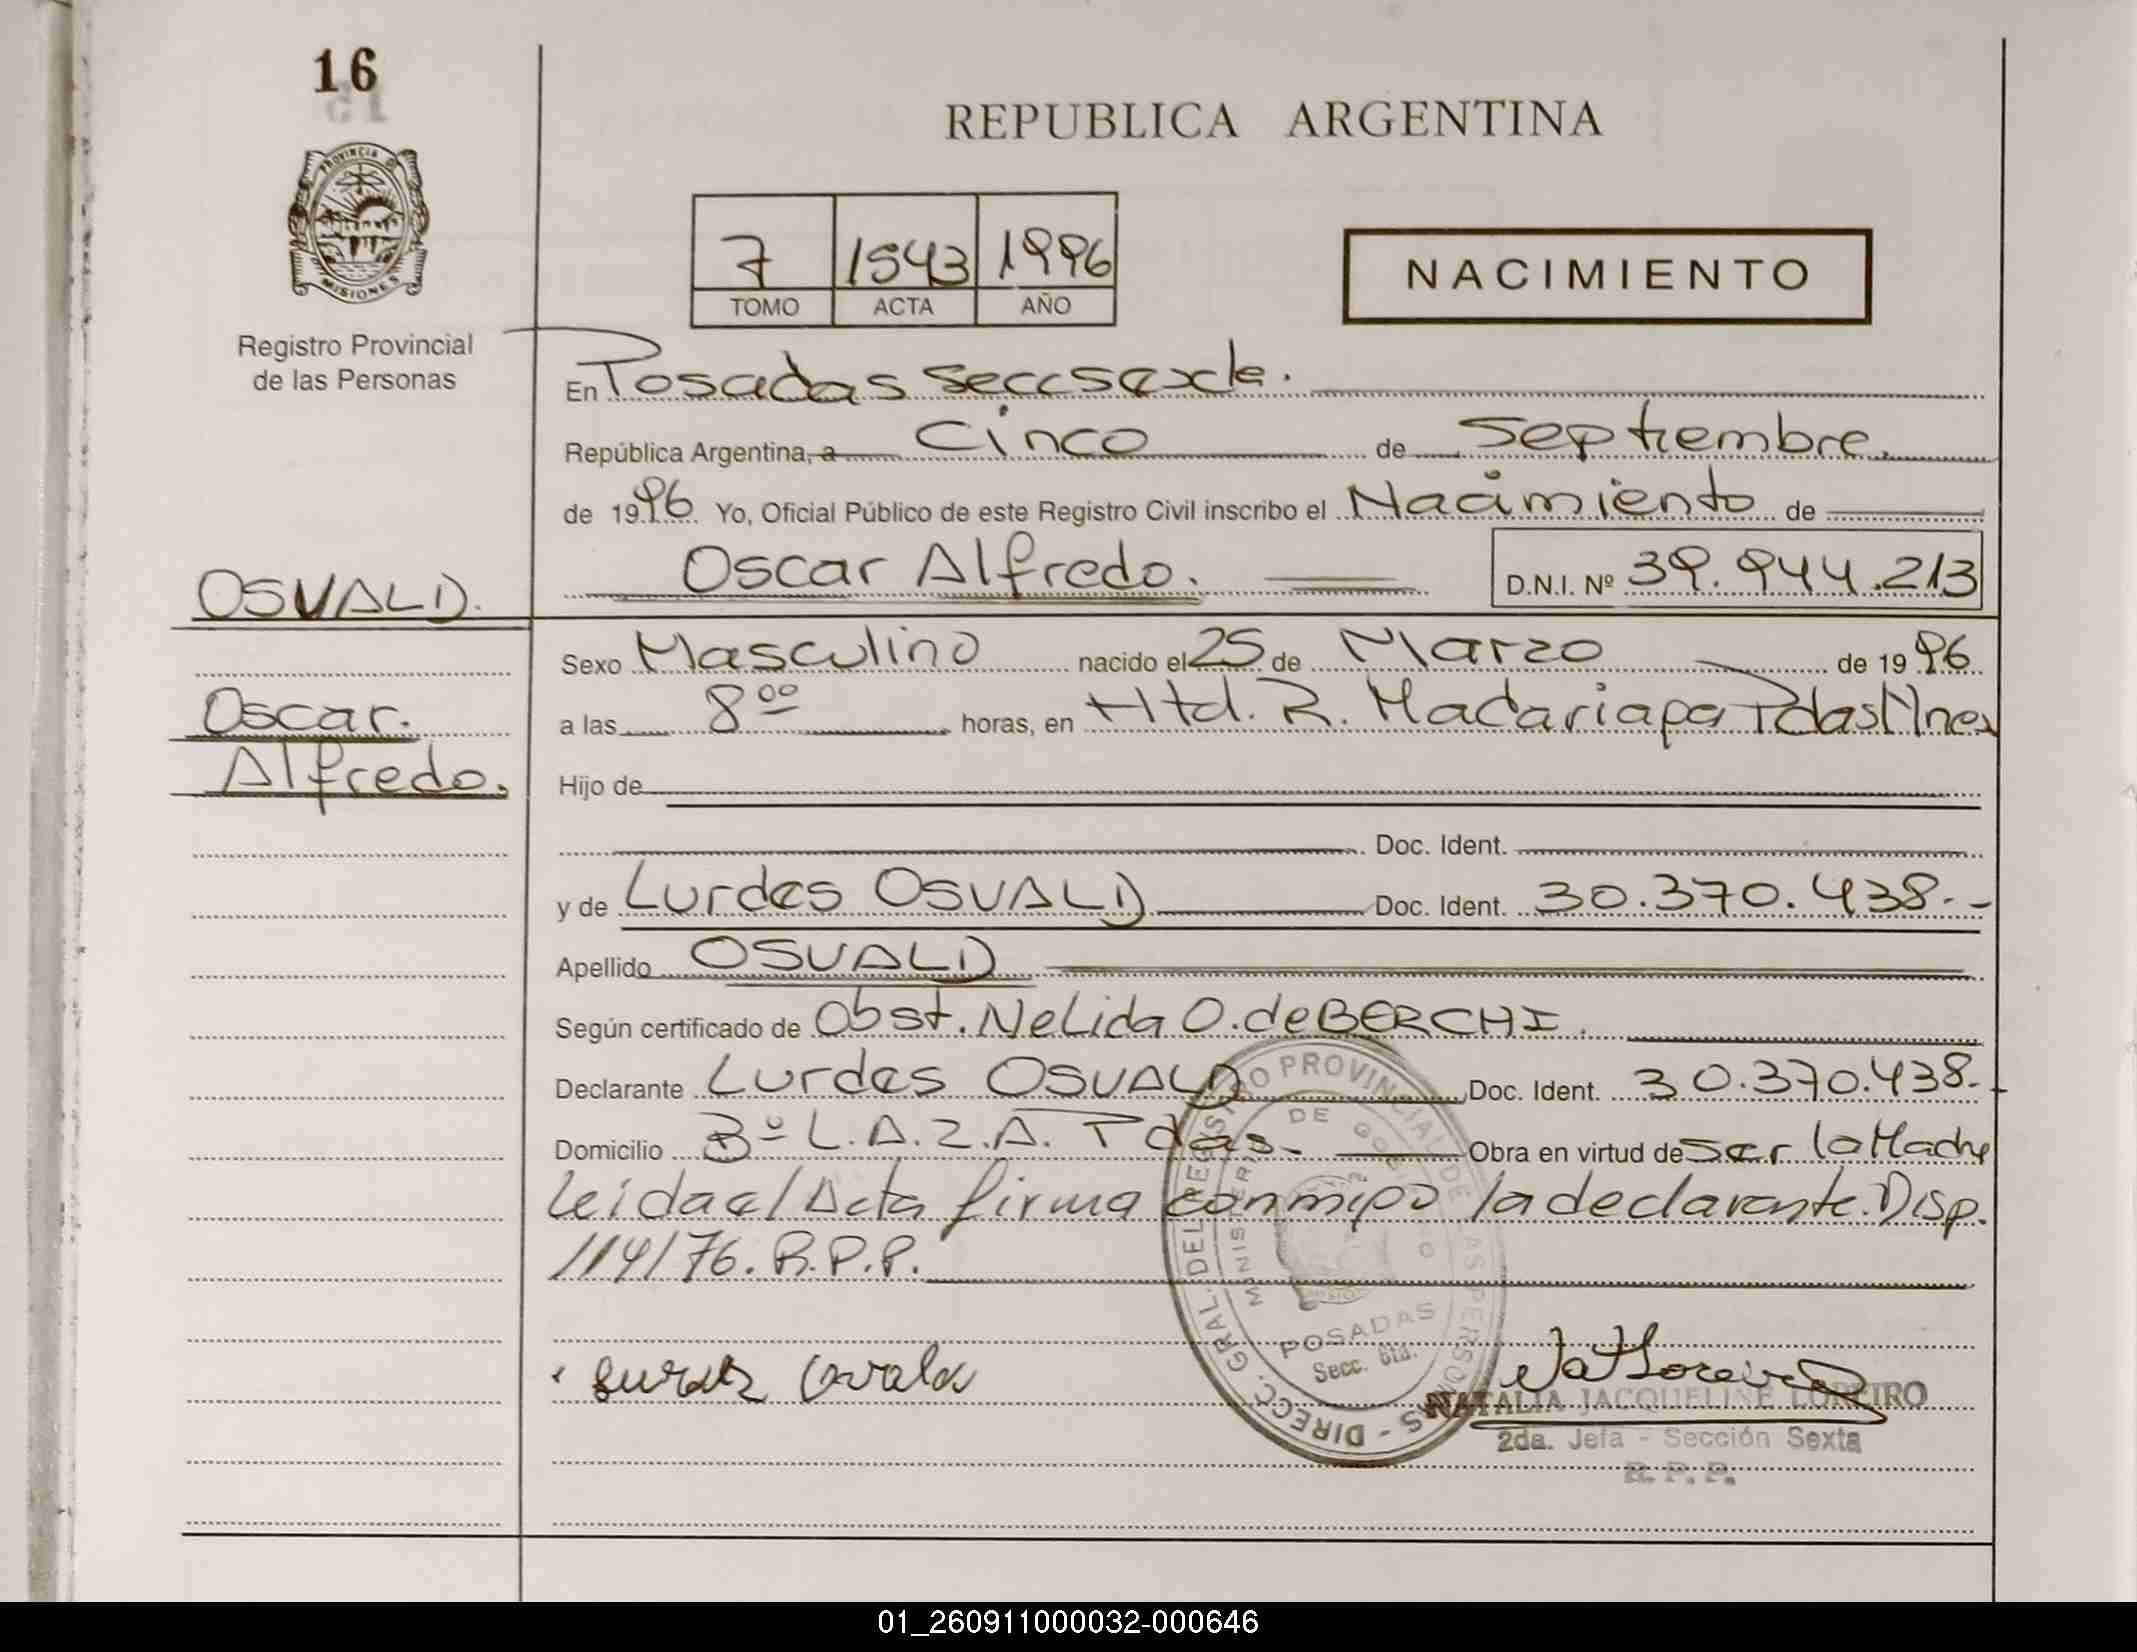 16
REPUBLICA ARGENTINA
PROVINCIA DE
MISIONES
7 1543 1996
TOMO ACTA AÑO
NACIMIENTO
Registro Provincial
de las Personas
En Posadas Secc sexta.
República Argentina, a Cinco de Septiembre.
de 1996 Yo, Oficial Público de este Registro Civil inscribo el Nacimiento de
Oscar Alfredo. D.N.I. Nº 39.944.213
OSVALD.
Oscar.
Alfredo.
Sexo Masculino nacido el 25 de Marzo de 1996
a las 8 00 horas, en Htd. R. Madariaga Pdas Mnes
Hijo de
Doc. Ident.
y de Lurdes OSVALD Doc. Ident. 30.370.438.-
Apellido OSVALD
Según certificado de Obst. Nelida O. de BERCHI.
Declarante Lurdes OSVALD Doc. Ident. 30.370.438.-
Domicilio Bº L.A.Z.A. Pdas.- Obra en virtud de ser la Madre
leida el Acta firma conmigo la declarante. Disp.
114/76. R.P.P.
DIRECC. GRAL. DEL REGISTRO PROVINCIAL DE LAS PERSONAS -
MINISTERIO DE GOBIERNO
POSADAS
Secc. 6ta.
NATALIA JACQUELINE LOREIRO
2da. Jefa - Sección Sexta
R. P. P.
01_260911000032-000646